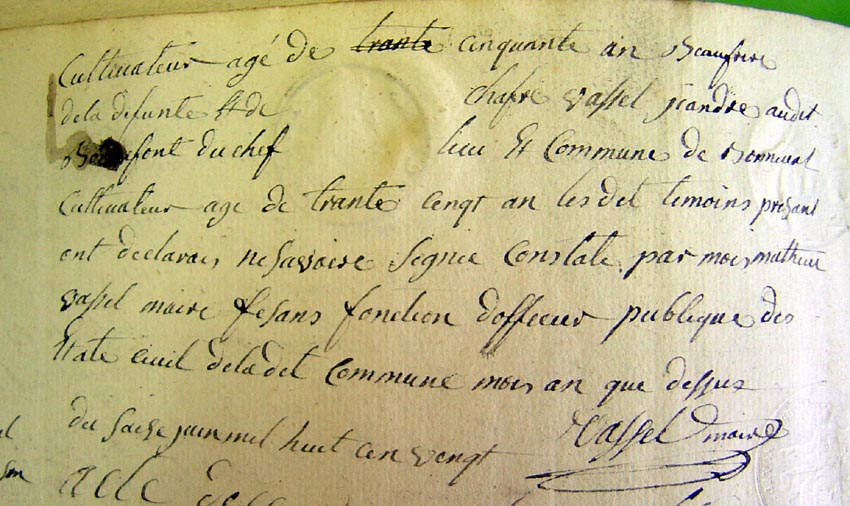 Cultivateur agé de trante cinquante an Beaufrere
de la defunte Et de chafre vassel jeandre audit
font du chef lieu Et Commune de Bonneval
Cultivateur age de trante cenqt an les det temoins presant
ont declarais ne savoire Segnie Constate par mois mathieu
vassel maire fesans fonction doffieur publique des
Etate civil de la det Commune mois an que dessus
du saise juin mil huit cen vengt Vassel maire
acte